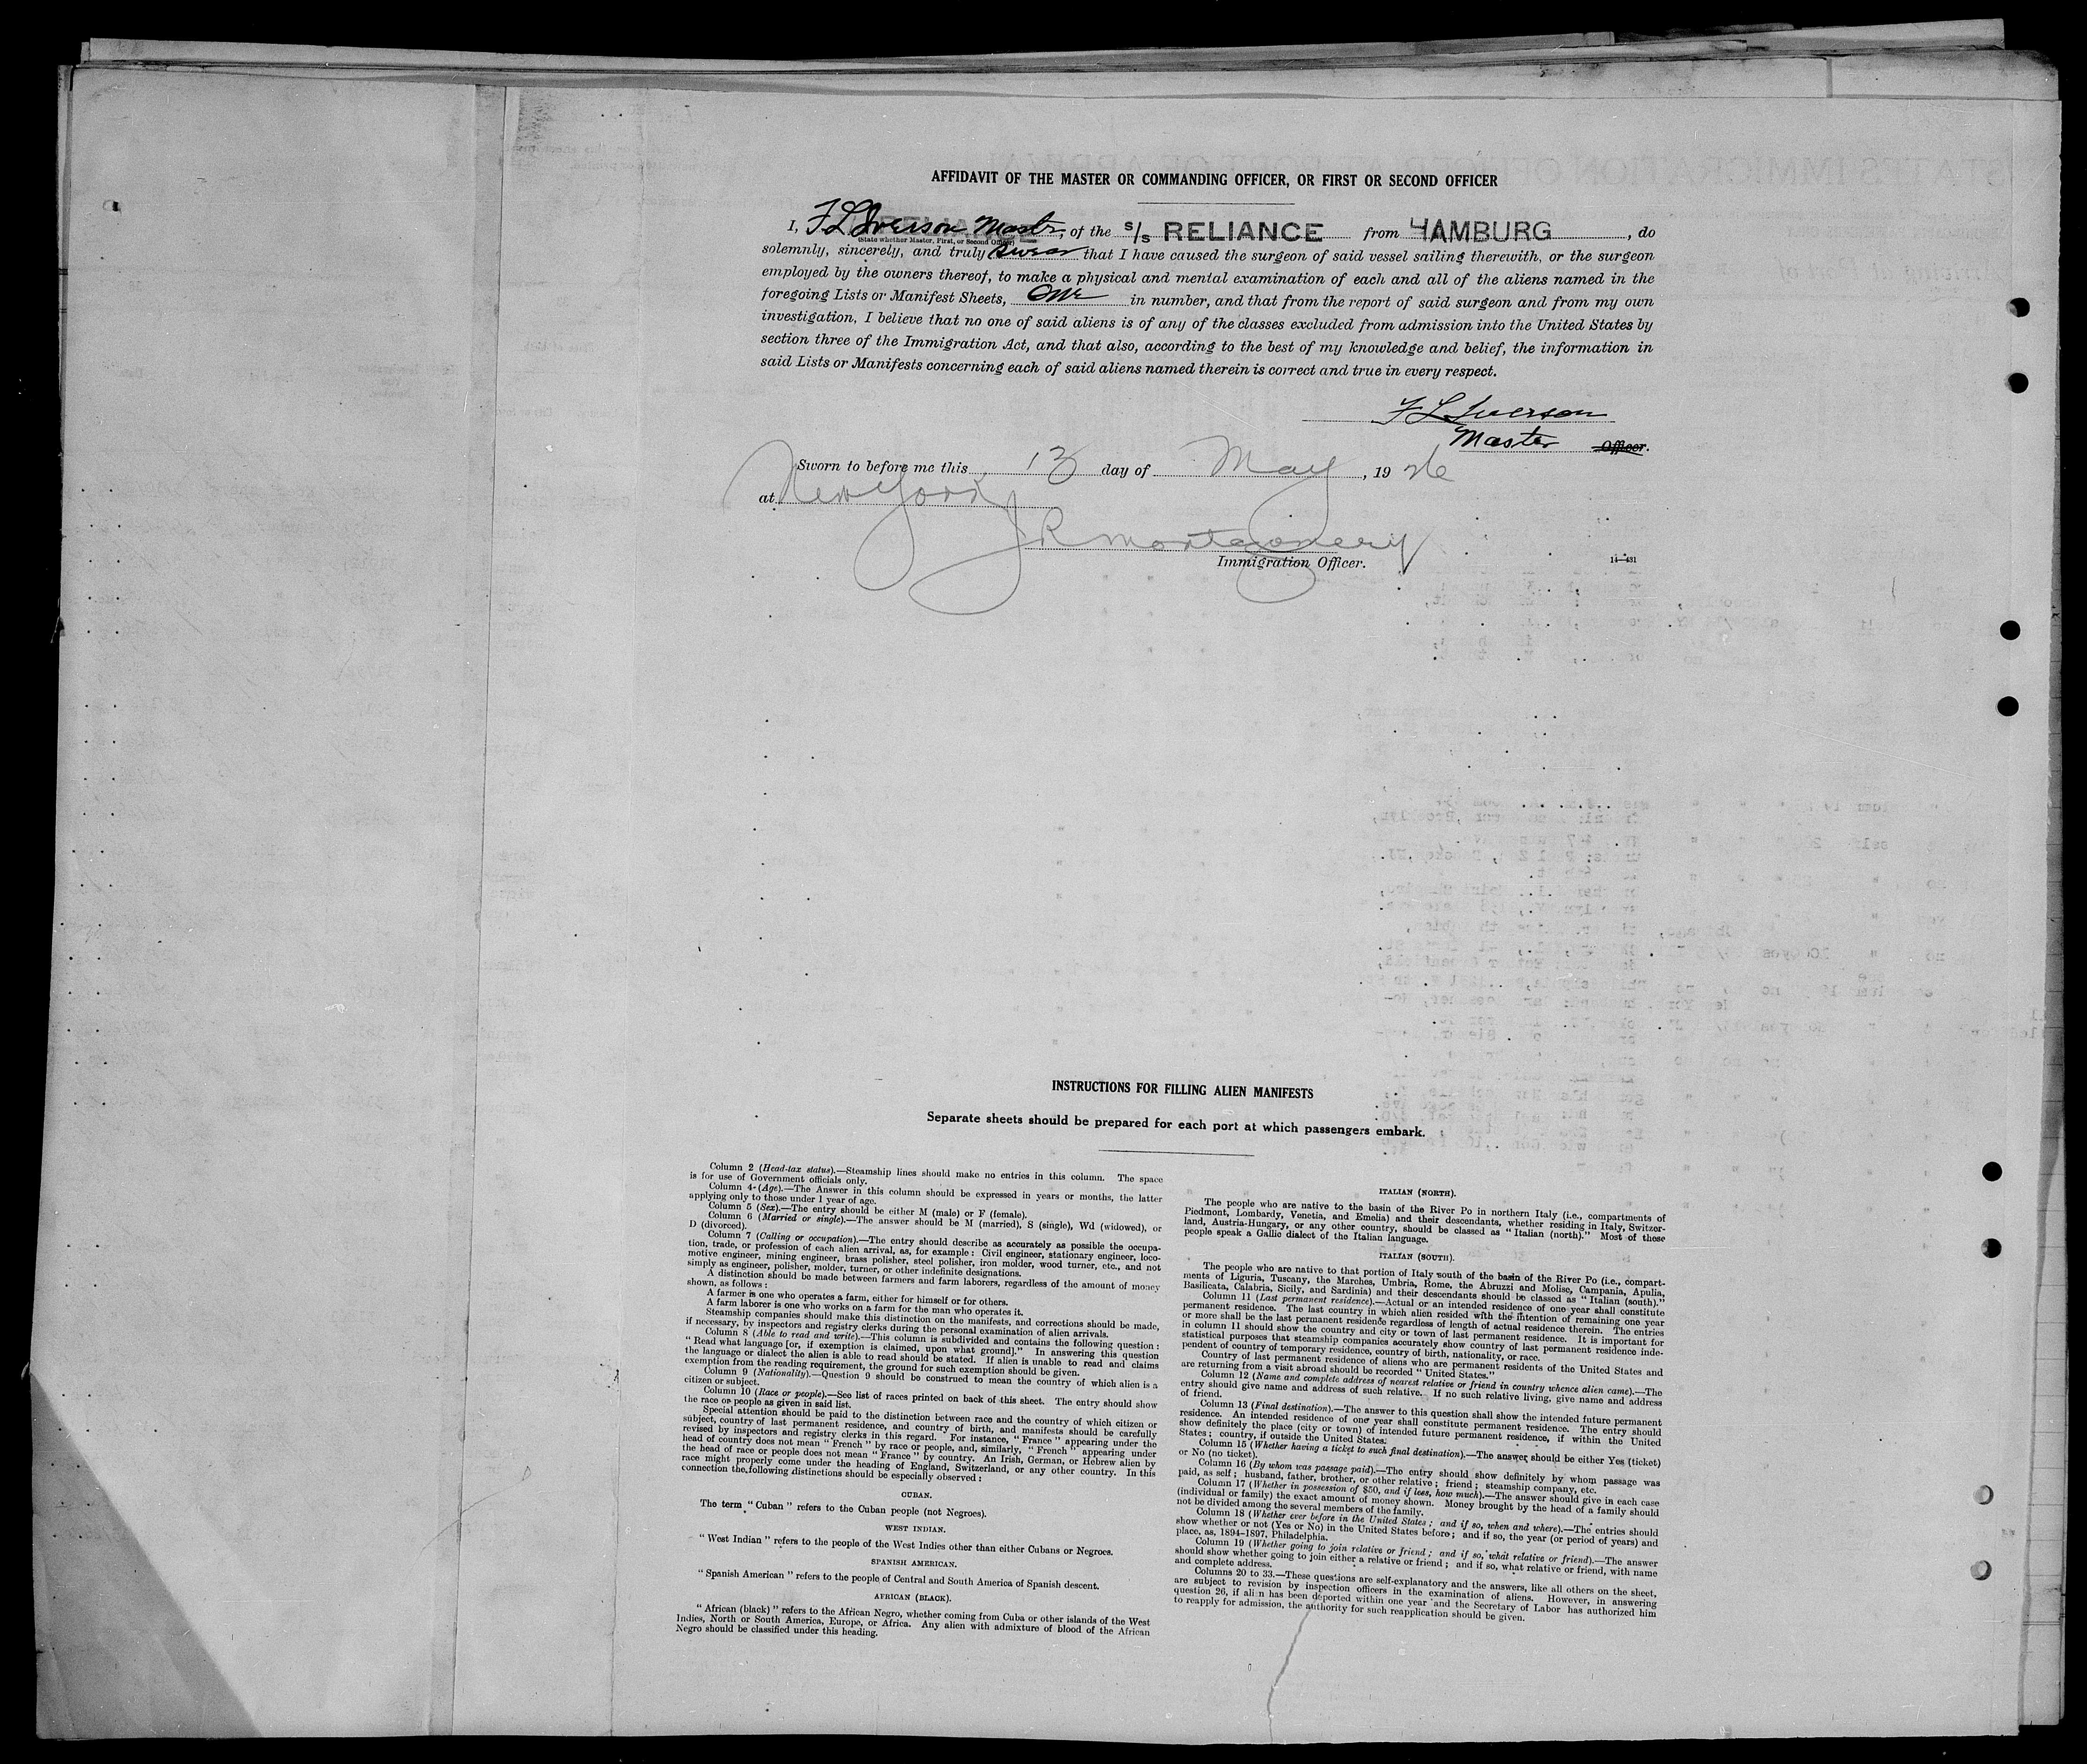 AFFIDAVIT OF THE MASTER OR COMMANDING OFFICER, OR FIRST OR SECOND OFFICER
I, F L Iverson Master, of the S/S RELIANCE from HAMBURG, do
(State whether Master, First, or Second Officer)
solemnly, sincerely, and truly swear that I have caused the surgeon of said vessel sailing therewith, or the surgeon
employed by the owners thereof, to make a physical and mental examination of each and all of the aliens named in the
foregoing Lists or Manifest Sheets, One in number, and that from the report of said surgeon and from my own
investigation, I believe that no one of said aliens is of any of the classes excluded from admission into the United States by
section three of the Immigration Act, and that also, according to the best of my knowledge and belief, the information in
said Lists or Manifests concerning each of said aliens named therein is correct and true in every respect.
F L Iverson
Master Officer.
Sworn to before me this 13 day of May, 1926
at New York
J R Montgomery
Immigration Officer.
14—431
INSTRUCTIONS FOR FILLING ALIEN MANIFESTS
Separate sheets should be prepared for each port at which passengers embark.
Column 2 (Head-tax status).—Steamship lines should make no entries in this column. The space
is for use of Government officials only.
Column 4 (Age).—The Answer in this column should be expressed in years or months, the latter
applying only to those under 1 year of age.
Column 5 (Sex).—The entry should be either M (male) or F (female).
Column 6 (Married or single).—The answer should be M (married), S (single), Wd (widowed), or
D (divorced).
Column 7 (Calling or occupation).—The entry should describe as accurately as possible the occupa-
tion, trade, or profession of each alien arrival, as, for example: Civil engineer, stationary engineer, loco-
motive engineer, mining engineer, brass polisher, steel polisher, iron molder, wood turner, etc., and not
simply as engineer, polisher, molder, turner, or other indefinite designations.
A distinction should be made between farmers and farm laborers, regardless of the amount of money
shown, as follows:
A farmer is one who operates a farm, either for himself or for others.
A farm laborer is one who works on a farm for the man who operates it.
Steamship companies should make this distinction on the manifests, and corrections should be made,
if necessary, by inspectors and registry clerks during the personal examination of alien arrivals.
Column 8 (Able to read and write).—This column is subdivided and contains the following question:
"Read what language [or, if exemption is claimed, upon what ground]." In answering this question
the language or dialect the alien is able to read should be stated. If alien is unable to read and claims
exemption from the reading requirement, the ground for such exemption should be given.
Column 9 (Nationality).—Question 9 should be construed to mean the country of which alien is a
citizen or subject.
Column 10 (Race or people).—See list of races printed on back of this sheet. The entry should show
the race or people as given in said list.
Special attention should be paid to the distinction between race and the country of which citizen or
subject, country of last permanent residence, and country of birth, and manifests should be carefully
revised by inspectors and registry clerks in this regard. For instance, "France" appearing under the
head of country does not mean "French" by race or people, and, similarly, "French" appearing under
the head of race or people does not mean "France" by country. An Irish, German, or Hebrew alien by
race might properly come under the heading of England, Switzerland, or any other country. In this
connection the following distinctions should be especially observed:
CUBAN.
The term "Cuban" refers to the Cuban people (not Negroes).
WEST INDIAN.
"West Indian" refers to the people of the West Indies other than either Cubans or Negroes.
SPANISH AMERICAN.
"Spanish American" refers to the people of Central and South America of Spanish descent.
AFRICAN (BLACK).
"African (black)" refers to the African Negro, whether coming from Cuba or other islands of the West
Indies, North or South America, Europe, or Africa. Any alien with admixture of blood of the African
Negro should be classified under this heading.
ITALIAN (NORTH).
The people who are native to the basin of the River Po in northern Italy (i.e., compartments of
Piedmont, Lombardy, Venetia, and Emelia) and their descendants, whether residing in Italy, Switzer-
land, Austria-Hungary, or any other country, should be classed as "Italian (north)." Most of these
people speak a Gallic dialect of the Italian language.
ITALIAN (SOUTH).
The people who are native to that portion of Italy south of the basin of the River Po (i.e., compart-
ments of Liguria, Tuscany, the Marches, Umbria, Rome, the Abruzzi and Molise, Campania, Apulia,
Basilicata, Calabria, Sicily, and Sardinia) and their descendants should be classed as "Italian (south)."
Column 11 (Last permanent residence).—Actual or an intended residence of one year shall constitute
permanent residence. The last country in which alien resided with the intention of remaining one year
or more shall be the last permanent residence regardless of length of actual residence therein. The entries
in column 11 should show the country and city or town of last permanent residence. It is important for
statistical purposes that steamship companies accurately show country of last permanent residence inde-
pendent of country of temporary residence, country of birth, nationality, or race.
Country of last permanent residence of aliens who are permanent residents of the United States and
are returning from a visit abroad should be recorded "United States."
Column 12 (Name and complete address of nearest relative or friend in country whence alien came).—The
entry should give name and address of such relative. If no such relative living, give name and address
of friend.
Column 13 (Final destination).—The answer to this question shall show the intended future permanent
residence. An intended residence of one year shall constitute permanent residence. The entry should
show definitely the place (city or town) of intended future permanent residence, if within the United
States; country, if outside the United States.
Column 15 (Whether having a ticket to such final destination).—The answer should be either Yes (ticket)
or No (no ticket).
Column 16 (By whom was passage paid).—The entry should show definitely by whom passage was
paid, as self; husband, father, brother, or other relative; friend; steamship company, etc.
Column 17 (Whether in possession of $50, and if less, how much).—The answer should give in each case
(individual or family) the exact amount of money shown. Money brought by the head of a family should
not be divided among the several members of the family.
Column 18 (Whether ever before in the United States; and if so, when and where).—The entries should
show whether or not (Yes or No) in the United States before; and if so, the year (or period of years) and
place, as, 1894-1897, Philadelphia.
Column 19 (Whether going to join relative or friend; and if so, what relative or friend).—The answer
should show whether going to join either a relative or friend; and if so, what relative or friend, with name
and complete address.
Columns 20 to 33.—These questions are self-explanatory and the answers, like all others on the sheet,
are subject to revision by inspection officers in the examination of aliens. However, in answering
question 26, if alien has been deported within one year and the Secretary of Labor has authorized him
to reapply for admission, the authority for such reapplication should be given.